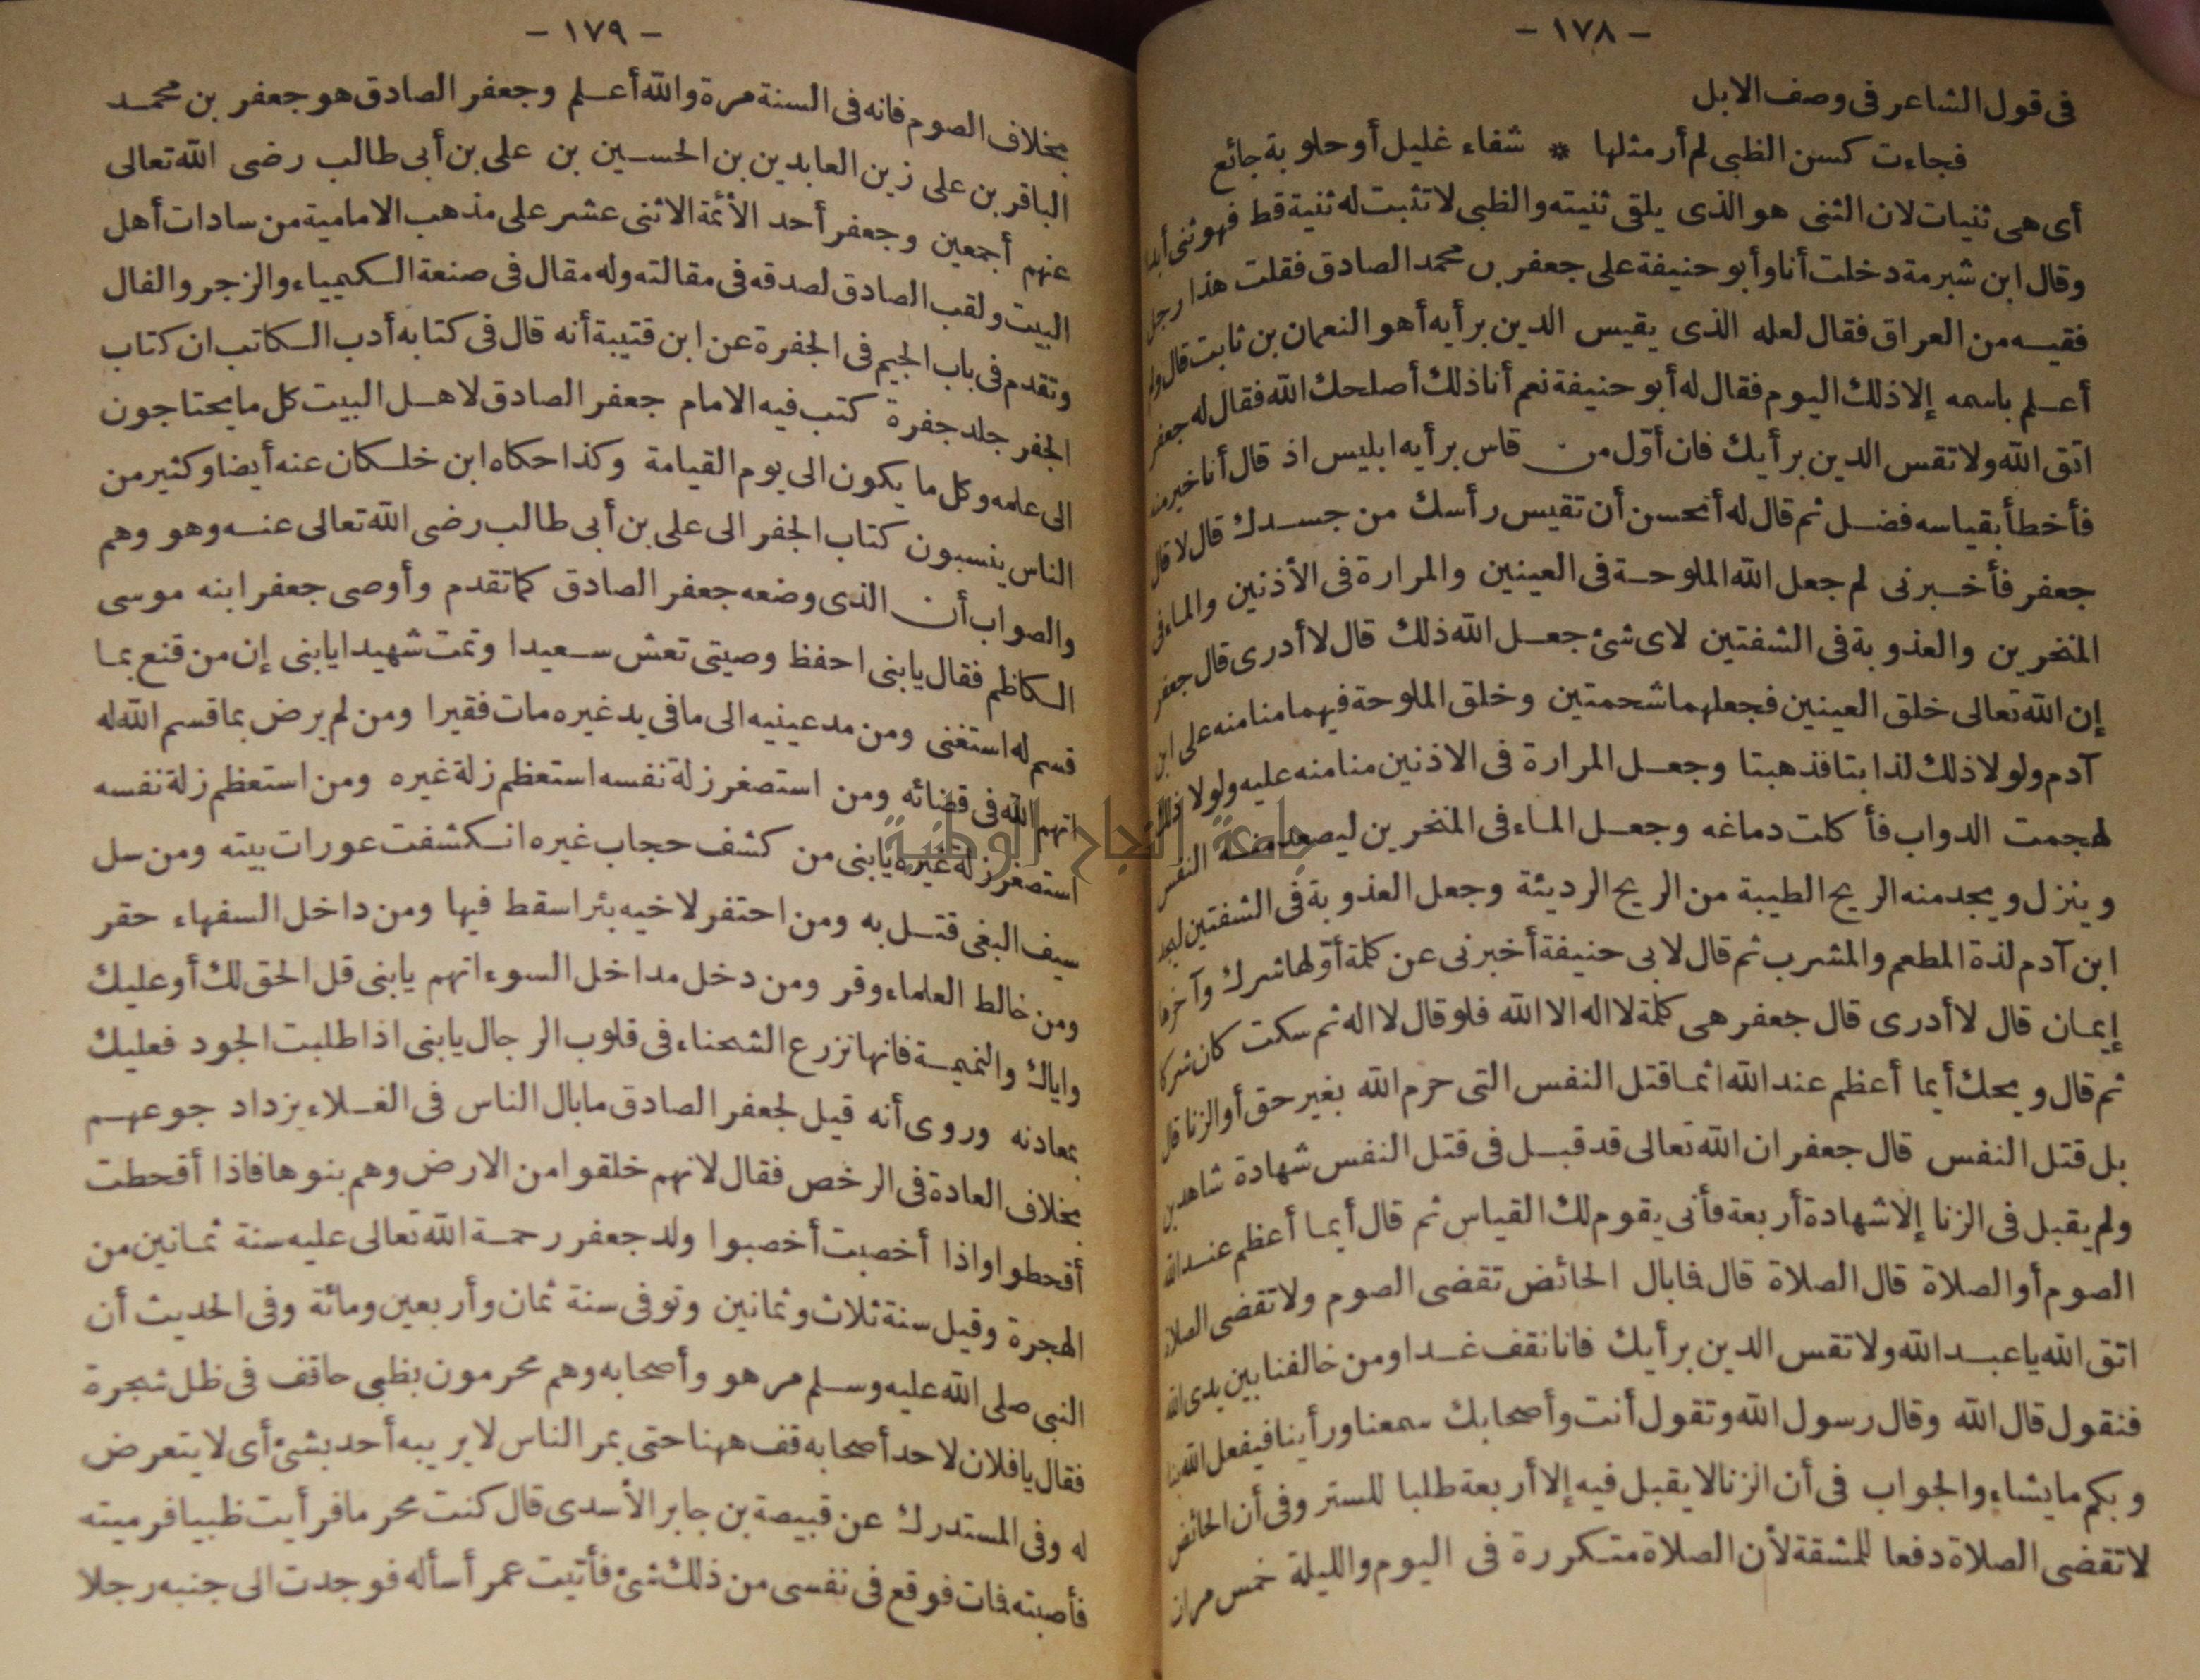 - ١٧٨ -
فى قول الشاعر فى وصف الابل
فجاءت كسن الظبى لم أر مثلها * شفاء غليل أو حلوبة جائع
أى هى ثنيات لان الثنى هو الذى يلقى ثنيته والظبى لا تثبت له ثنية قط فهو ثنى أبدا
وقال ابن شبرمة دخلت أنا وأبو حنيفة على جعفر بن محمد الصادق فقلت هذا رجل
فقيه من العراق فقال لعله الذى يقيس الدين برأيه أهو النعمان بن ثابت قال ولم
أعلم باسمه إلا ذلك اليوم فقال له أبو حنيفة نعم أنا ذلك أصلحك الله فقال له جعفر
اتق الله ولا تقس الدين برأيك فان أول من قاس برأيه ابليس اذ قال أنا خير منه
فأخطأ بقياسه فضل ثم قال له أتحسن أن تقيس رأسك من جسدك قال لا قال
جعفر فأخبرنى لم جعل الله الملوحة فى العينين والمرارة فى الأذنين والماء فى
المنخرين والعذوبة فى الشفتين لاى شئ جعل الله ذلك قال لا أدرى قال جعفر
إن الله تعالى خلق العينين فجعلهما شحمتين وخلق الملوحة فيهما منا منه على ابن
آدم ولولا ذلك لذابتا فذهبتا وجعل المرارة فى الاذنين منا منه عليه ولولا ذلك
لهجمت الدواب فأكلت دماغه وجعل الماء فى المنخرين ليصعد منه النفس
وينزل ويجد منه الريح الطيبة من الريح الرديئة وجعل العذوبة فى الشفتين ليجد
ابن آدم لذة المطعم والمشرب ثم قال لابى حنيفة أخبرنى عن كلمة أولها شرك وآخرها
إيمان قال لا أدرى قال جعفر هى كلمة لا اله الا الله فلو قال لا اله ثم سكت كان شركا
ثم قال ويحك أيما أعظم عند الله اثما قتل النفس التى حرم الله بغير حق أو الزنا قال
بل قتل النفس قال جعفر ان الله تعالى قد قبل فى قتل النفس شهادة شاهدين
ولم يقبل فى الزنا إلا شهادة أربعة فأنى يقوم لك القياس ثم قال أيما أعظم عند الله
الصوم أو الصلاة قال الصلاة قال فما بال الحائض تقضى الصوم ولا تقضى الصلاة
اتق الله يا عبد الله ولا تقس الدين برأيك فانا نقف غدا ومن خالفنا بين يدى الله
فنقول قال الله وقال رسول الله وتقول أنت وأصحابك سمعنا ورأينا فيفعل الله بنا
وبكم ما يشاء والجواب فى أن الزنا لا يقبل فيه إلا أربعة طلبا للستر وفى أن الحائض
لا تقضى الصلاة دفعا للمشقة لأن الصلاة متكررة فى اليوم والليلة خمس مرات
- ١٧٩ -
بخلاف الصوم فانه فى السنة مرة والله أعلم وجعفر الصادق هو جعفر بن محمد
الباقر بن على زين العابدين بن الحسين بن على بن أبى طالب رضى الله تعالى
عنهم أجمعين وجعفر أحد الأئمة الاثنى عشر على مذهب الامامية من سادات أهل
البيت ولقب الصادق لصدقه فى مقالته وله مقال فى صنعة الكيمياء والزجر والفال
وتقدم فى باب الجيم فى الجفرة عن ابن قتيبة أنه قال فى كتابه أدب الكاتب ان كتاب
الجفر جلد جفرة كتب فيه الامام جعفر الصادق لاهل البيت كل ما يحتاجون
الى علمه وكل ما يكون الى يوم القيامة وكذا حكاه ابن خلكان عنه أيضا وكثير من
الناس ينسبون كتاب الجفر الى على بن أبى طالب رضى الله تعالى عنه وهو وهم
والصواب أن الذى وضعه جعفر الصادق كما تقدم وأوصى جعفر ابنه موسى
الكاظم فقال يا بنى احفظ وصيتى تعش سعيدا وتمت شهيدا يا بنى إن من قنع بما
قسم له استغنى ومن مد عينيه الى ما فى يد غيره مات فقيرا ومن لم يرض بما قسم الله له
اتهم الله فى قضائه ومن استصغر زلة نفسه استعظم زلة غيره ومن استعظم زلة نفسه
استصغر زلة غيره يا بنى من كشف حجاب غيره انكشفت عورات بيته ومن سل
سيف البغى قتل به ومن احتفر لاخيه بئرا سقط فيها ومن داخل السفهاء حقر
ومن خالط العلماء وقر ومن دخل مداخل السوء اتهم يا بنى قل الحق لك أو عليك
واياك والنميمة فانها تزرع الشحناء فى قلوب الرجال يا بنى اذا طلبت الجود فعليك
بمعادنه وروى أنه قيل لجعفر الصادق ما بال الناس فى الغلاء يزداد جوعهم
بخلاف العادة فى الرخص فقال لانهم خلقوا من الارض وهم بنوها فاذا أقحطت
أقحطوا واذا أخصبت أخصبوا ولد جعفر رحمة الله تعالى عليه سنة ثمانين من
الهجرة وقيل سنة ثلاث وثمانين وتوفى سنة ثمان وأربعين ومائة وفى الحديث أن
النبى صلى الله عليه وسلم مر هو وأصحابه وهم محرمون بظبى حاقف فى ظل شجرة
فقال يا فلان لاحد أصحابه قف ههنا حتى يمر الناس لا يريبه أحد بشئ أى لا يتعرض
له وفى المستدرك عن قبيصة بن جابر الأسدى قال كنت محرما فرأيت ظبيا فرميته
فأصبته فمات فوقع فى نفسى من ذلك شئ فأتيت عمر أسأله فوجدت الى جنبه رجلا
جامعة النجاح الوطنية